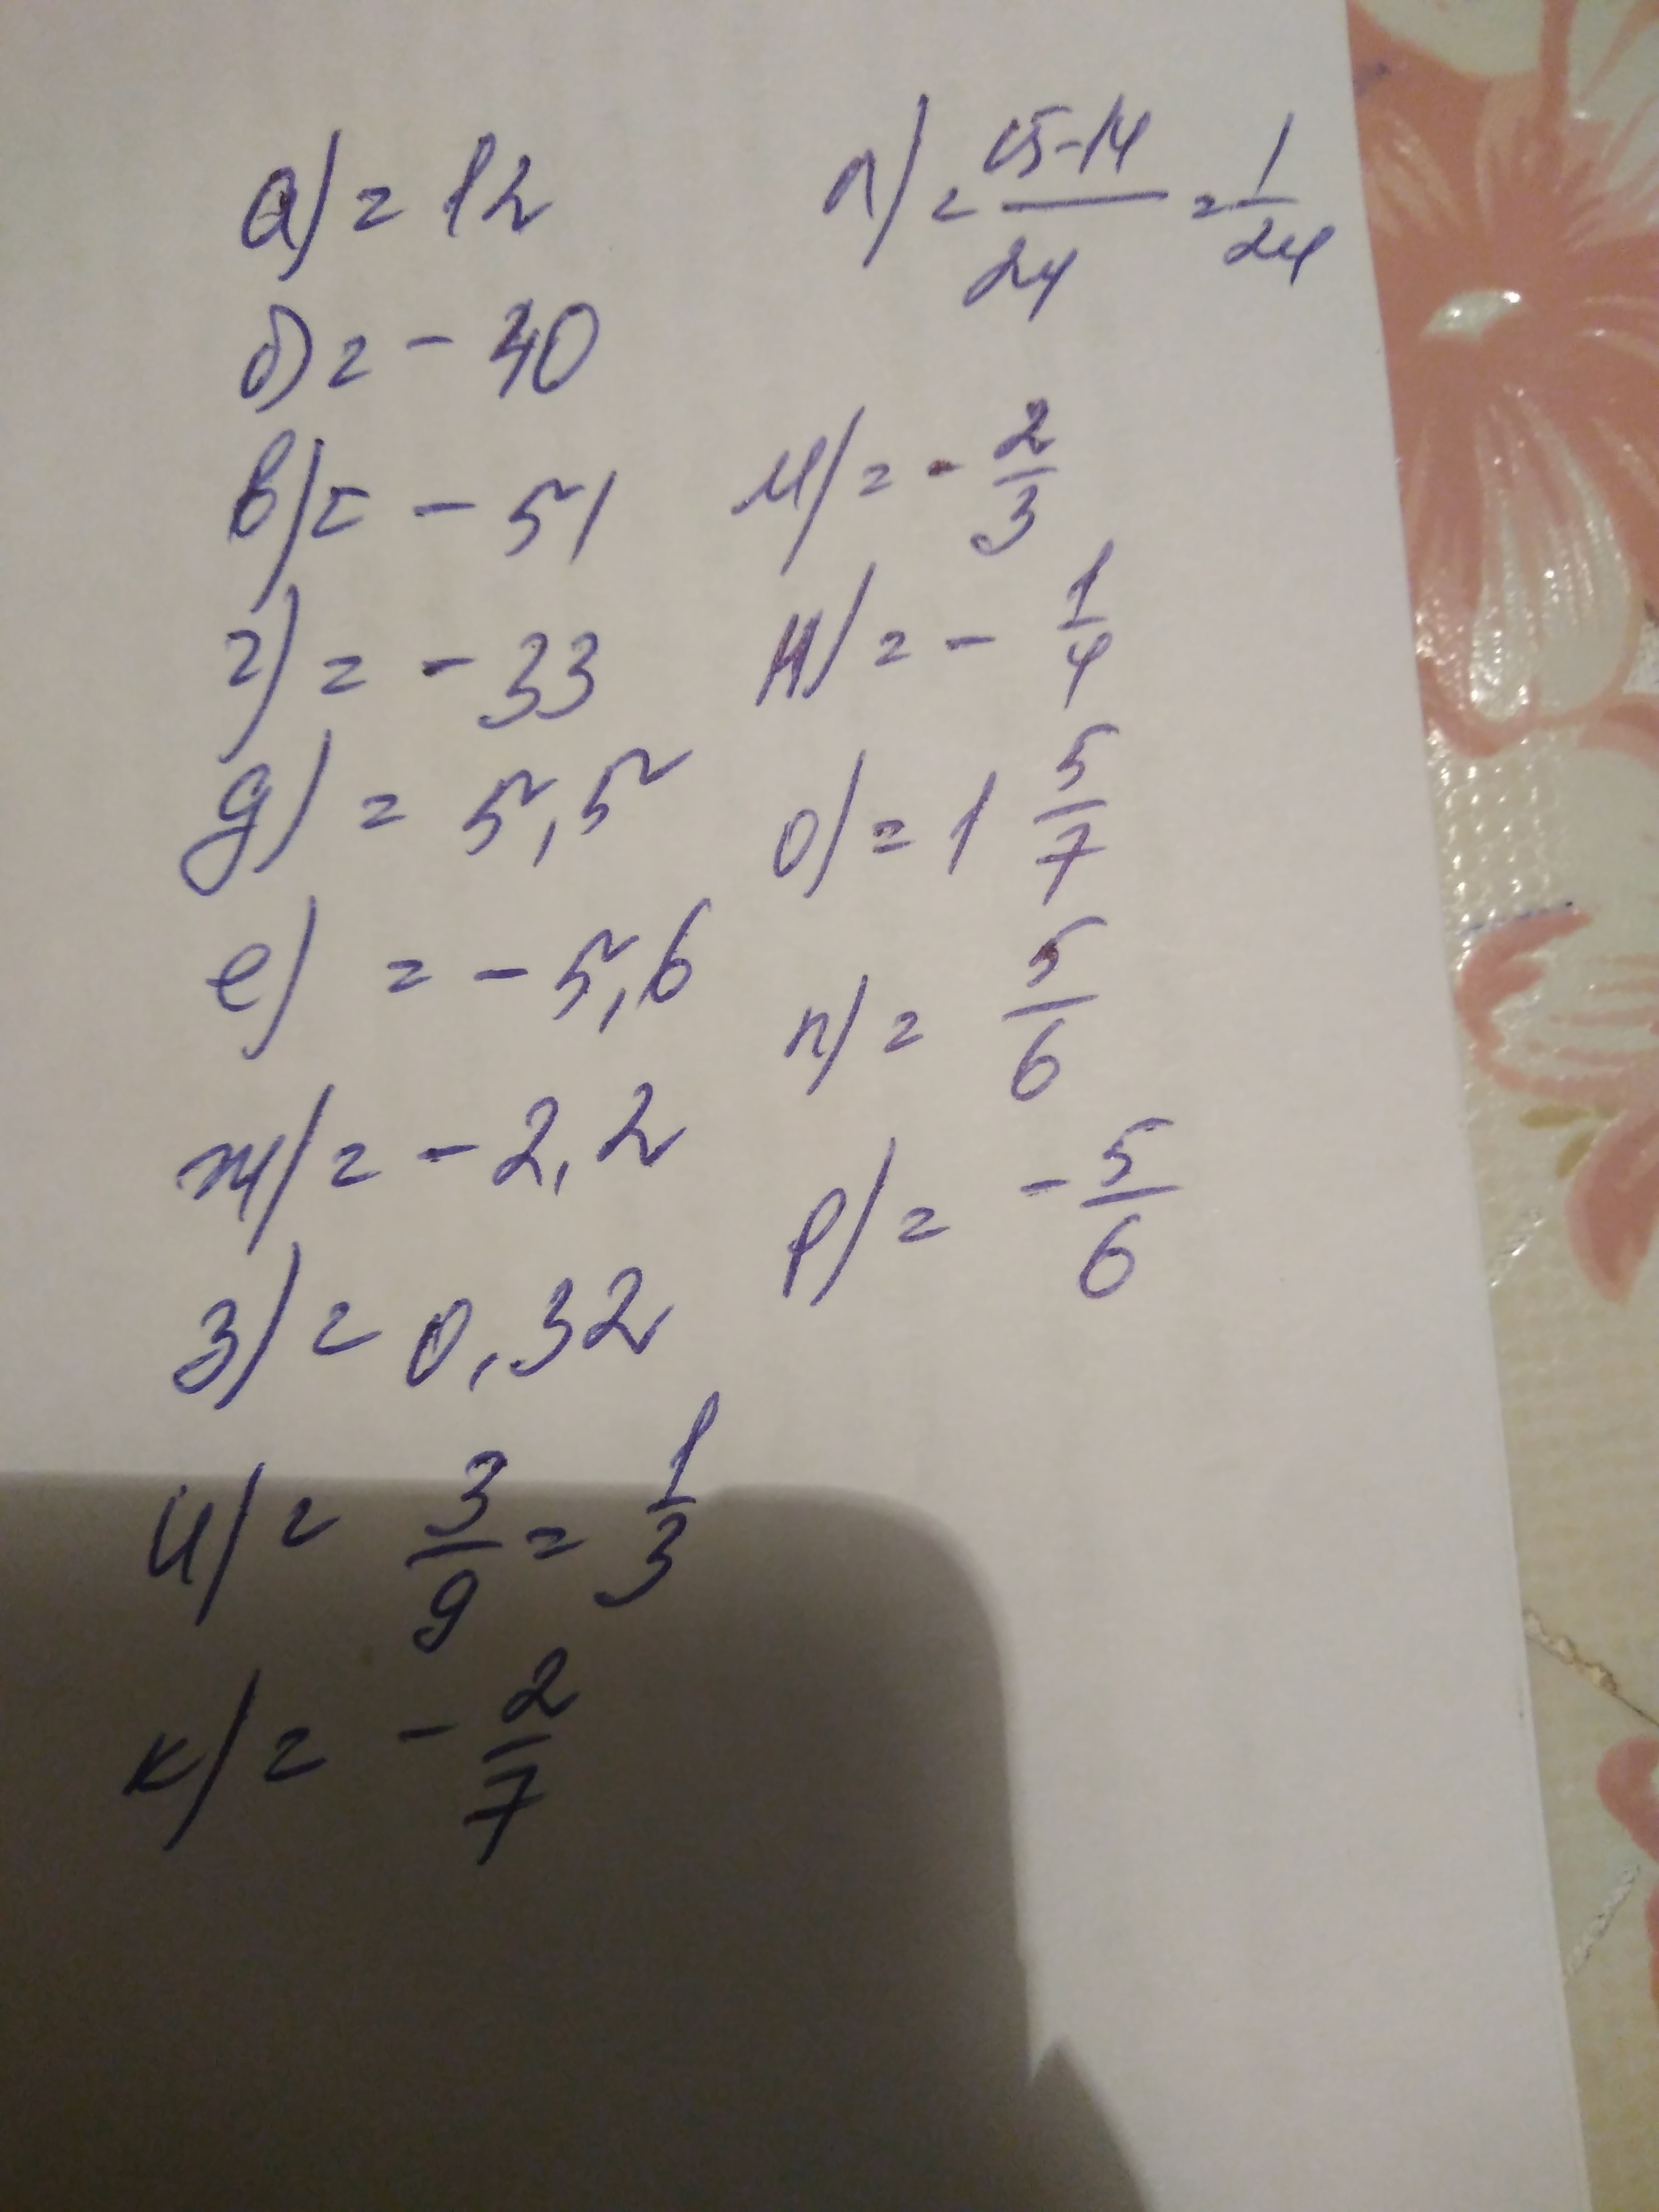 а) = 12
б) = - 40
в) = - 51
г) = - 33
д) = 5,5
е) = - 5,6
ж) = - 2,2
з) = 0,32
и) = 3/9 = 1/3
к) = - 2/7
л) = 15-14/24 = 1/24
м) = - 2/3
н) = - 1/4
о) = 1 5/7
п) = 5/6
р) = - 5/6